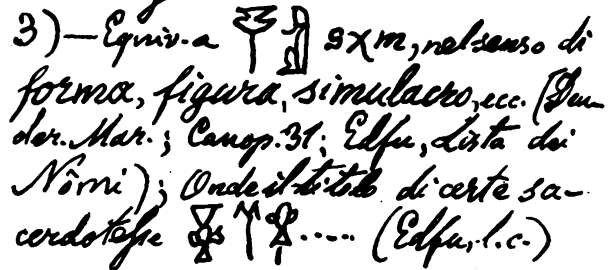 3)—Equiv. a 𓋴𓐍𓅓 sχm, nel senso di
forma, figura, simulacro, ecc. (Den-
der. Mar.; Canop. 31; Edfu, Lista dei
Nômi); Onde il titolo di certe sa-
cerdotesse ..... (Edfu, l.c.)